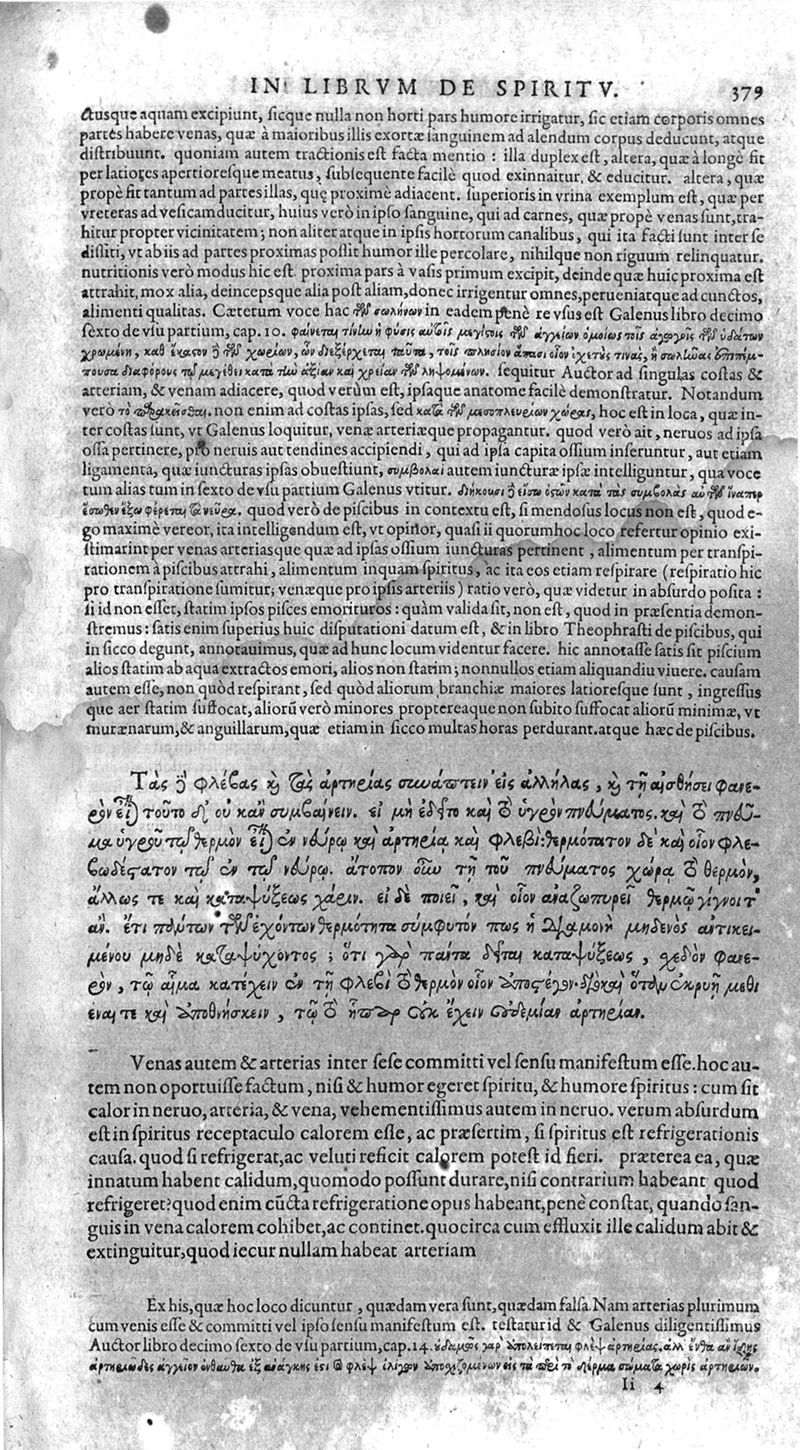 IN LIBRVM DE SPIRITV. 379
ctusque aquam excipiunt, sicque nulla non horti pars humore irrigatur, sic etiam corporis omnes
partes habere venas, quæ à maioribus illis exortæ sanguinem ad alendum corpus deducunt, atque
distribuunt. quoniam autem tractionis est facta mentio : illa duplex est, altera, quæ à longè fit
per latiores apertioresque meatus, subsequente facilè quod exinnaitur, & educitur. altera, quæ
propè fit tantum ad partes illas, quę proximè adiacent. superioris in vrina exemplum est, quæ per
vreteras ad vesicam ducitur, huius verò in ipso sanguine, qui ad carnes, quæ propè venas sunt, tra-
hitur propter vicinitatem; non aliter atque in ipsis hortorum canalibus, qui ita facti sunt inter se
dissiti, vt ab iis ad partes proximas possit humor ille percolare, nihilque non riguum relinquatur.
nutritionis verò modus hic est. proxima pars à vasis primum excipit, deinde quæ huic proxima est
attrahit, mox alia, deincepsque alia post aliam, donec irrigentur omnes, perueniatque ad cunctos,
alimenti qualitas. Cæterum voce hac τῶν σωλήνων in eadem penè re vsus est Galenus libro decimo
sexto de vsu partium, cap. 10. φαίνεται τίνιω ἡ φύσις αὐτοῖς μεγίστοις τῶν ἀγγείων ὁμοίως τοῖς ἀγωγοῖς τῶν ὑδάτων
χρωμένη, καθ᾽ ἕκαστον δὲ τῶν χωρίων, ὧν διεξέρχεται ταῦτα, τοῖς πλησίον ἅπασι οἷον ὀχετούς τινας, ἢ σωλῆνας ἐπιπέμ-
πουσα διαφόρους τῷ μεγέθει κατὰ τὴν ἀξίαν καὶ χρείαν τῶν ληψομένων. sequitur Auctor ad singulas costas &
arteriam, & venam adiacere, quod verùm est, ipsaque anatome facilè demonstratur. Notandum
verò τὸ παρακεῖσθαι. non enim ad costas ipsas, sed κατὰ τῶν μεσοπλευρίων χώρας, hoc est in loca, quæ in-
ter costas sunt, vt Galenus loquitur, venæ arteriæque propagantur. quod verò ait, neruos ad ipsa
ossa pertinere, pro neruis aut tendines accipiendi, qui ad ipsa capita ossium inseruntur, aut etiam
ligamenta, quæ iuncturas ipsas obuestiunt, συμβολαὶ autem iuncturæ ipsæ intelliguntur, qua voce
tum alias tum in sexto de vsu partium Galenus vtitur. διήκουσι δὲ εἴσω ὀστῶν κατὰ τὰς συμβολὰς
ἔσωθεν ἔξω φέρεται τὰ νεῦρα. quod verò de piscibus in contextu est, si mendosus locus non est, quod e-
go maximè vereor, ita intelligendum est, vt opinor, quasi ii quorum hoc loco refertur opinio exi-
stimarint per venas arteriasque quæ ad ipsas ossium iuncturas pertinent, alimentum per transpi-
rationem à piscibus attrahi, alimentum inquam spiritus, ac ita eos etiam respirare (respiratio hic
pro transpiratione sumitur; venæque pro ipsis arteriis) ratio verò, quæ videtur in absurdo posita :
si id non esset, statim ipsos pisces emorituros : quàm valida sit, non est, quod in præsentia demon-
stremus : satis enim superius huic disputationi datum est, & in libro Theophrasti de piscibus, qui
in sicco degunt, annotauimus, quæ ad hunc locum videntur facere. hic annotasse satis sit piscium
alios statim ab aqua extractos emori, alios non statim; nonnullos etiam aliquandiu viuere. causam
autem esse, non quòd respirant, sed quòd aliorum branchiæ maiores latioresque sunt, ingressus
que aer statim suffocat, aliorū verò minores proptereaque non subito suffocat aliorū minimæ, vt
murænarum, & anguillarum, quæ etiam in sicco multas horas perdurant. atque hæc de piscibus.
Τὰς δὲ φλέβας καὶ τὰς ἀρτηρίας συνάπτειν εἰς ἀλλήλας, καὶ τῇ αἰσθήσει φανε-
ρὸν εἶναι τοῦτο δὲ οὐκ ἂν συμβαίνειν. εἰ μὴ ἐδεῖτο καὶ τὸ ὑγρὸν πνεύματος. καὶ τὸ πνεῦ-
μα ὑγροῦ τῷ θερμὸν εἶναι ἐν νεύρῳ καὶ ἀρτηρίᾳ καὶ φλεβί· θερμότατον δὲ καὶ οἷον φλε-
βωδέστατον τῷ ἐν τῷ νεύρῳ. ἄτοπον οὖν τῇ τοῦ πνεύματος χώρᾳ τὸ θερμὸν,
ἄλλως τε καὶ καταψύξεως χάριν. εἰ δὲ ποιεῖ, καὶ οἷον ἀναζωπυρεῖ θερμῷ γίγνοιτ᾽
ἄν. ἔτι πάντων τῶν ἐχόντων θερμότητα σύμφυτόν πως ἡ διαμονὴ μηδενὸς ἀντικει-
μένου μηδὲ καταψύχοντος ; ὅτι γὰρ πάντα δεῖται καταψύξεως, σχεδὸν φανε-
ρὸν, τῷ αἷμα κατέχειν ἐν τῇ φλεβὶ τὸ θερμὸν οἷον ἀποστέγον· διὸ καὶ ὅταν ἐκρυῇ μεθι
έναι τε καὶ ἀποθνήσκειν, τῷ τὸ ἧπαρ οὐκ ἔχειν οὐδεμίαν ἀρτηρίαν.
Venas autem & arterias inter sese committi vel sensu manifestum esse. hoc au-
tem non oportuisse factum, nisi & humor egeret spiritu, & humore spiritus : cum sit
calor in neruo, arteria, & vena, vehementissimus autem in neruo. verum absurdum
est in spiritus receptaculo calorem esse, ac præsertim, si spiritus est refrigerationis
causa. quod si refrigerat, ac veluti reficit calorem potest id fieri. præterea ea, quæ
innatum habent calidum, quomodo possunt durare, nisi contrarium habeant quod
refrigeret? quod enim cūcta refrigeratione opus habeant, penè constat, quando san-
guis in vena calorem cohibet, ac continet. quocirca cum effluxit ille calidum abit &
extinguitur, quod iecur nullam habeat arteriam
Ex his, quæ hoc loco dicuntur, quædam vera sunt, quædam falsa. Nam arterias plurimum
cum venis esse & committi vel ipso sensu manifestum est. testatur id & Galenus diligentissimus
Auctor libro decimo sexto de vsu partium, cap. 14. οὐδαμῶς γὰρ ἀπολείπεται φλὲψ ἀρτηρίας, ἀλλ᾽ ἔνθα ἂν
ἀρτηριῶδες ἀγγεῖον ἐνταῦθα ἐξ ἀνάγκης ἐστὶ φλὲψ ὀλίγων ἀποσχιζομένων εἰς τὰ περὶ τὸ δέρμα σώματα χωρὶς ἀρτηριῶν.
Ii 4